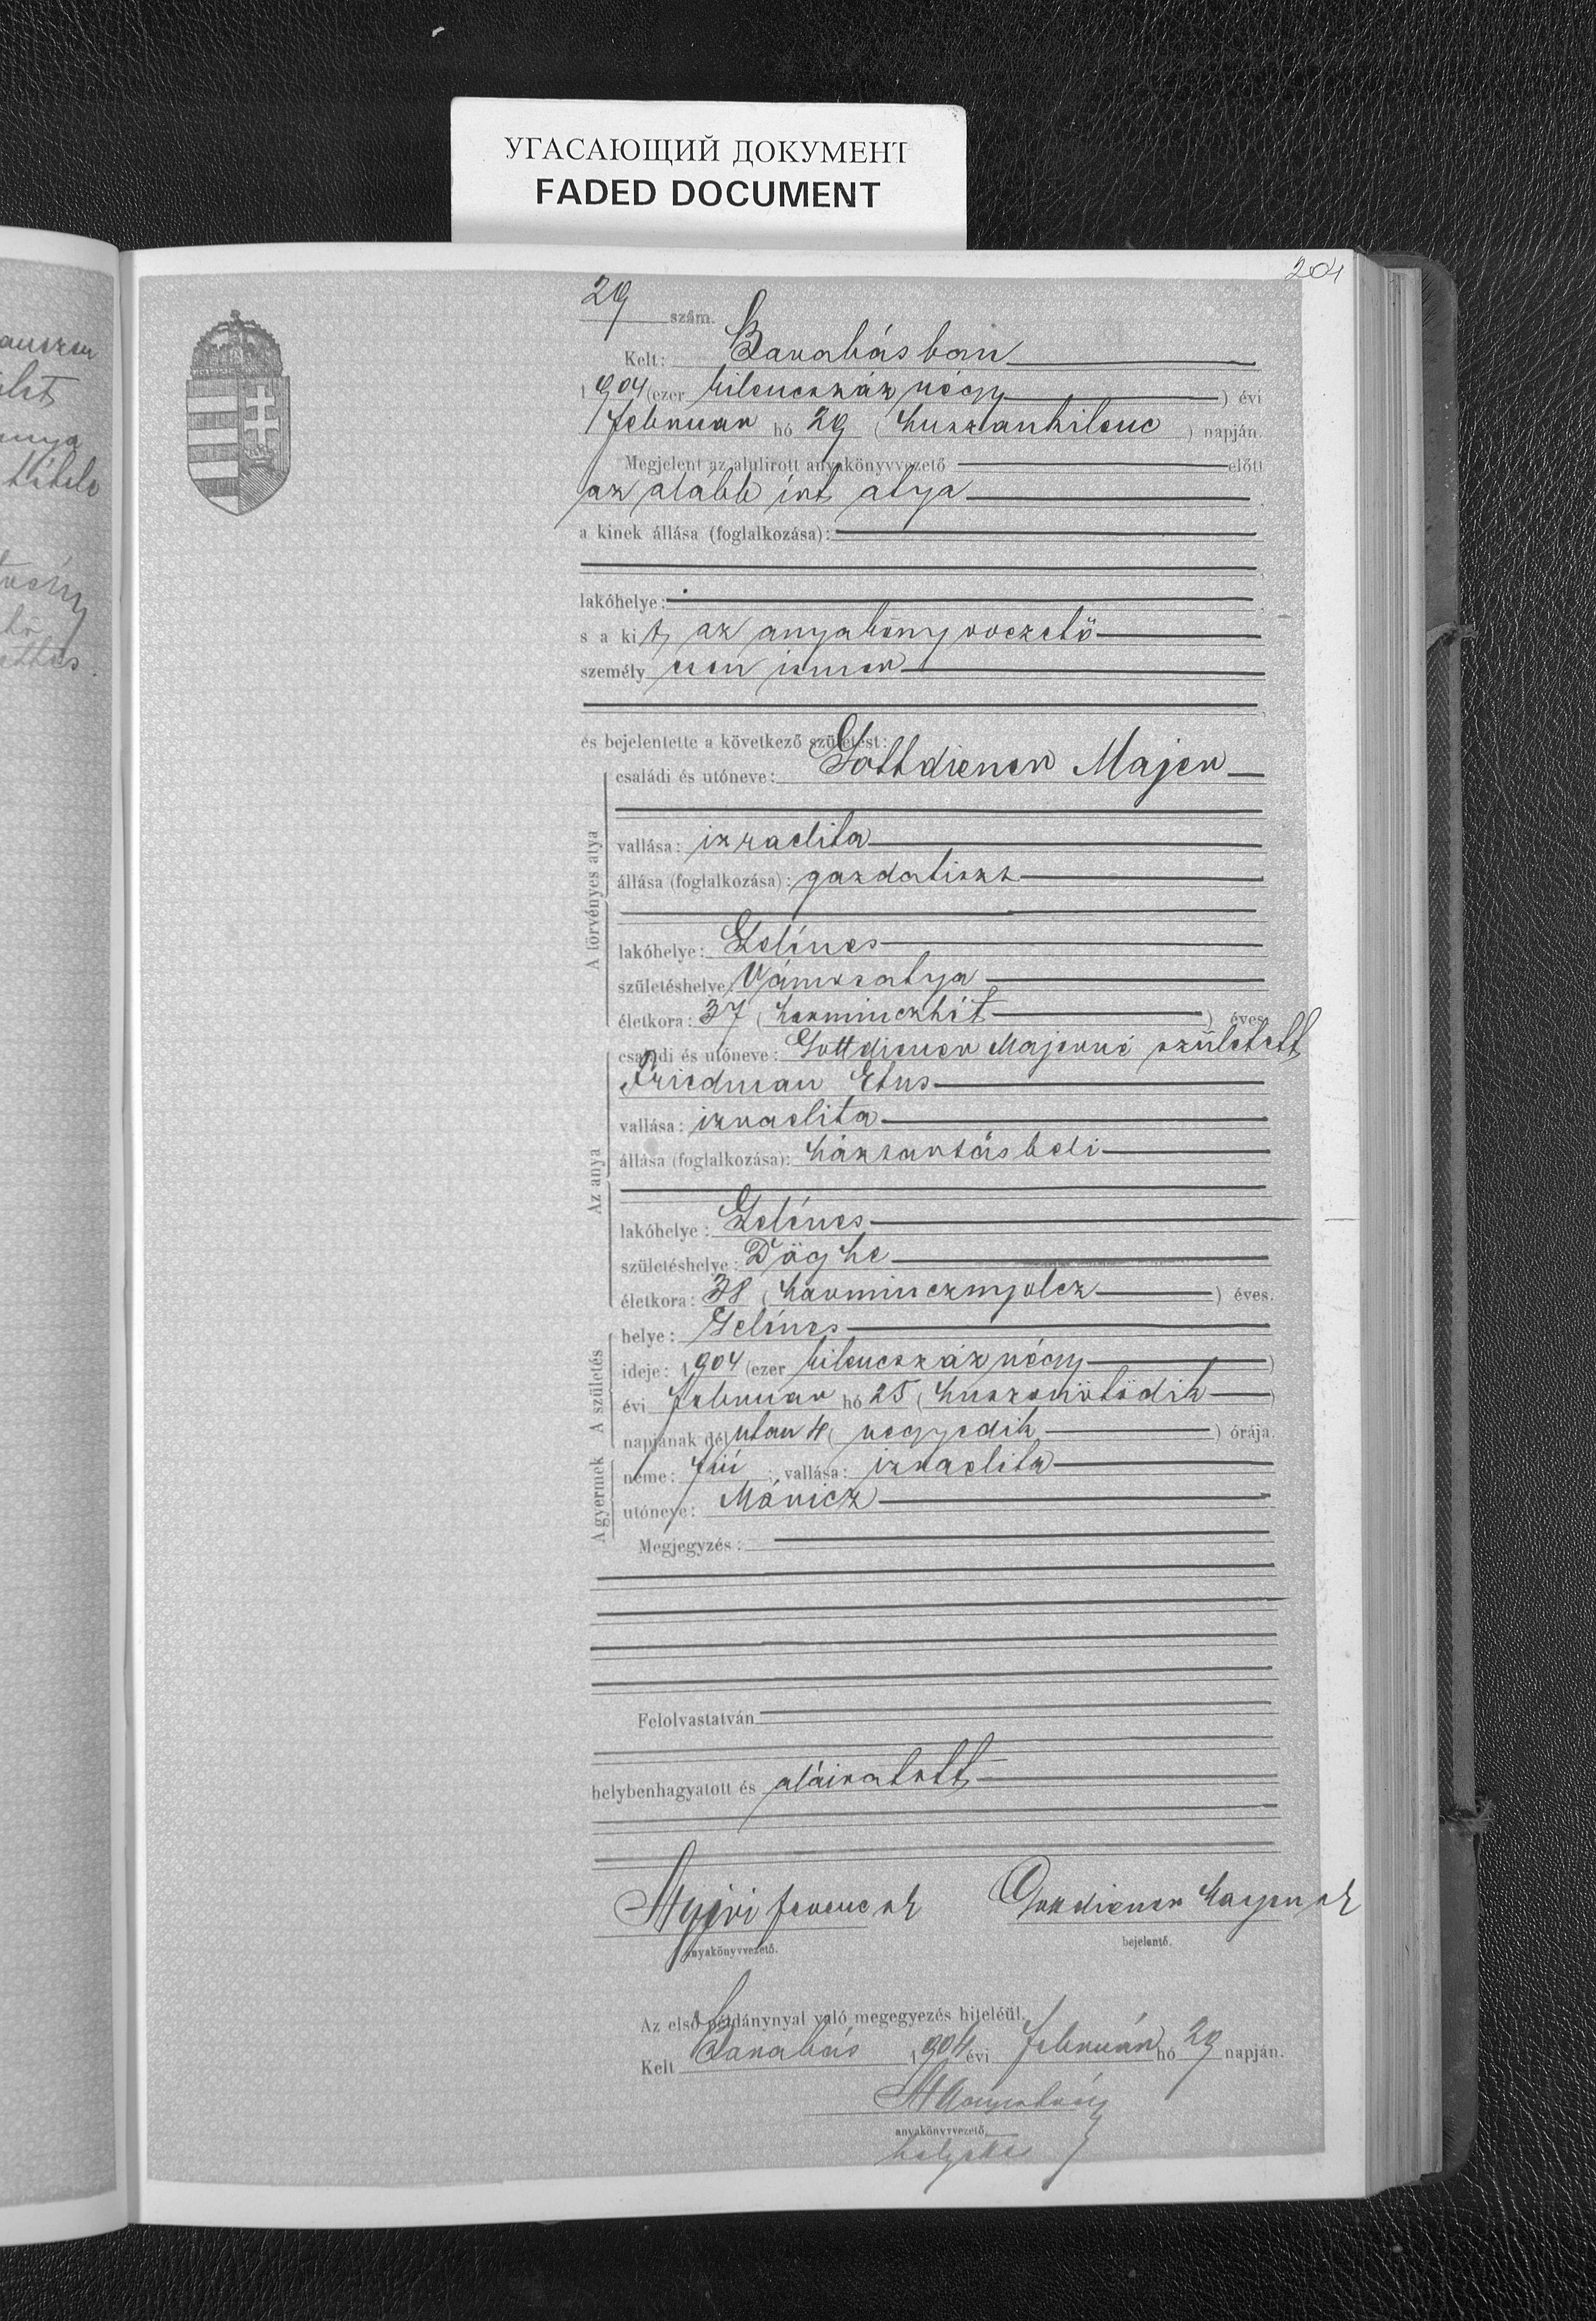 УГАСАЮЩИЙ ДОКУМЕНТ
FADED DOCUMENT
204
29 szám.
Kelt: Barabásban
1904 (ezer kilencszáz négy) évi
februar hó 29 (huszankilenc) napján.
Megjelent az alulirott anyakönyvvezető előtt
az alább írt atya
a kinek állása (foglalkozása):
lakóhelye:
s a kit az anyakönyvvezető
személyesen ismer
és bejelentette a következő születést:
A törvényes atya
családi és utóneve: Gottdiener Majer
vallása: izraelita
állása (foglalkozása): gazdatiszt
lakóhelye: Gelénes
születéshelye: Vámosatya
életkora: 37 (harminczhét) éves.
Az anya
családi és utóneve: Gottdiener Majerné született
Friedman Etus
vallása: izraelita
állása (foglalkozása): háztartásbeli
lakóhelye: Gelénes
születéshelye: Döghe
életkora: 38 (harmincznyolcz) éves.
A születés
helye: Gelénes
ideje: 1904 (ezer kilencszáz négy)
évi februar hó 25 (huszonötödik)
napjának délutan 4 (negyedik) órája.
A gyermek
neme: fiú; vallása: izraelita
utóneve: Móricz
Megjegyzés:
Felolvastatván
helybenhagyatott és aláiratott
Nyiri Ferencz sk Gottdiener Mayer sk
anyakönyvvezető. bejelentő.
Az első példánynyal való megegyezés hiteléül.
Kelt Barabás 1904 évi február hó 29 napján.
anyakönyvvezető
helyettes